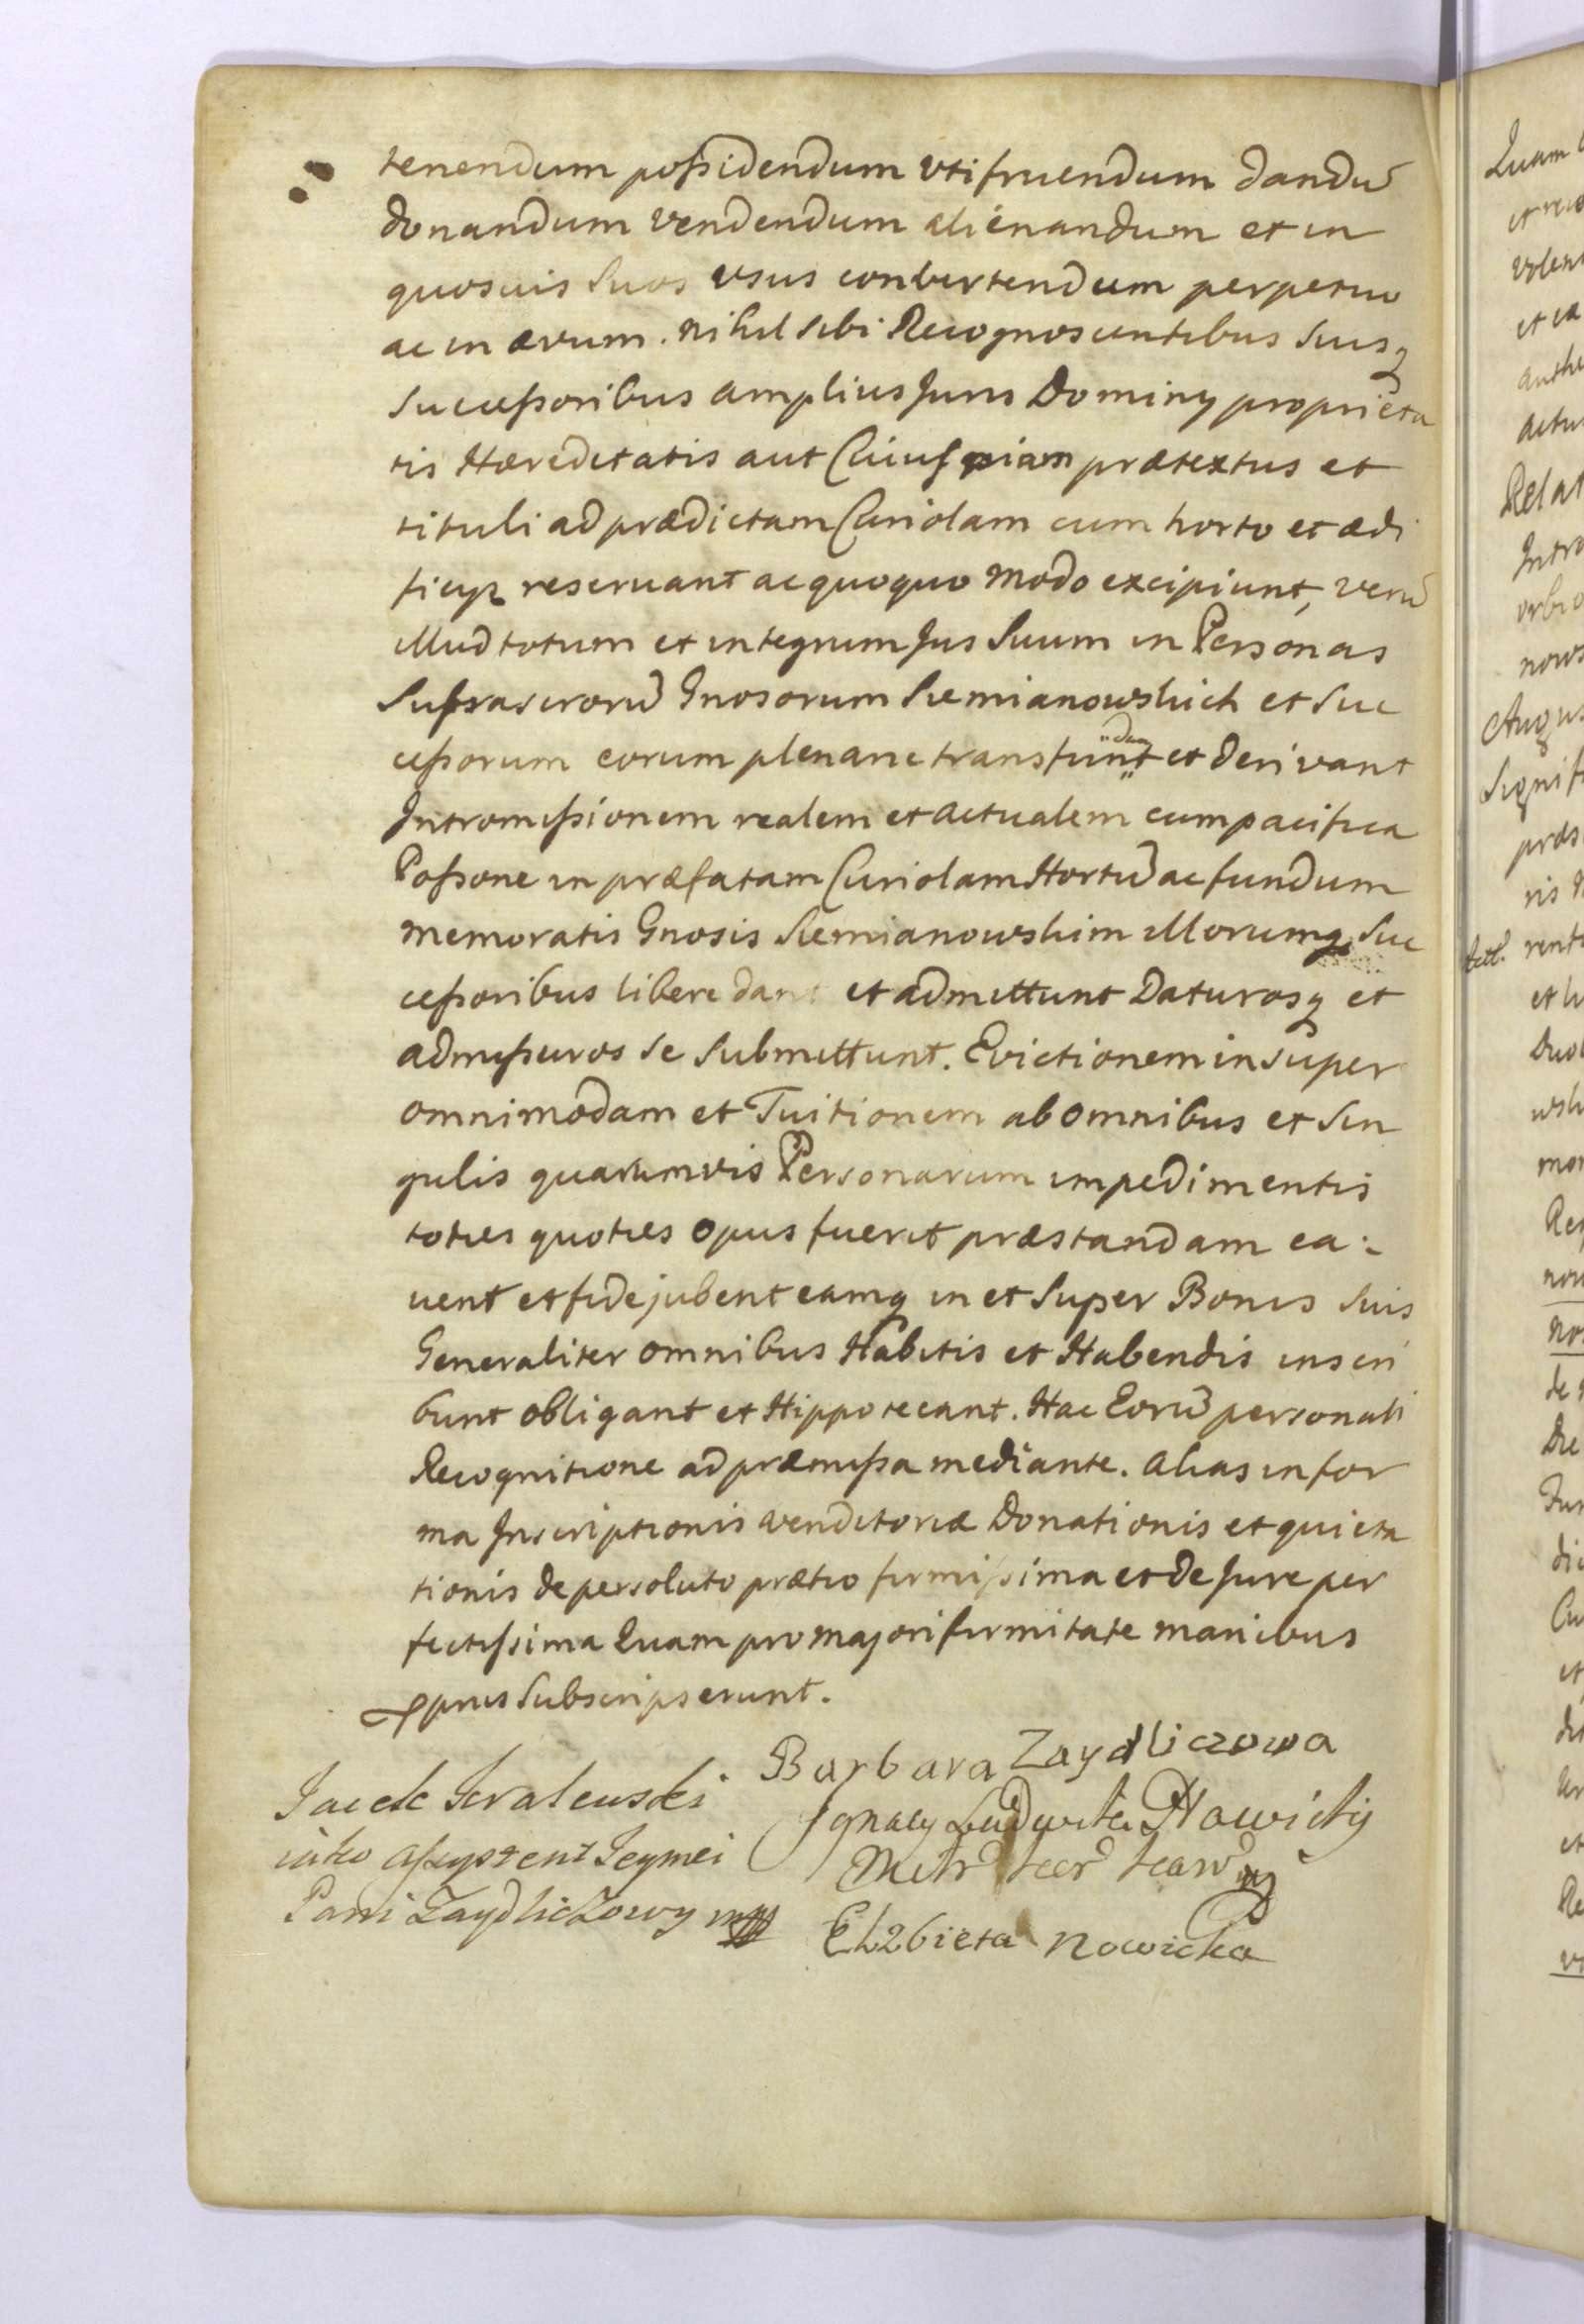 tenendum possidendum vtifruendum dandū
donandum vendendum alienandum et in
quosuis Suos vsus convertendum perpetuo
ac in ævum. nihil sibi Recognoscentibus Suisq
Successoribus amplius Juris Dominÿ proprieta
tis Hæreditatis aut Cuiuspiam prætextus et
tituli ad prædictam Curiolam cum horto et ædi
ficÿs reseruant ac quoquo modo excipiunt, verū
illud totum et integrum Jus Suum in Personas
Gnosorum Siemianowskich et Suc
cessorum eorum plenarie transfundunt et derivant
Intromissionem realem et actualem cum pacifica
Possone in præfatam Curiolam Hortū ac fundum
memoratis Gnosis Siemianowskim illorumq Suc
cessoribus libere dant et admittunt Daturosq et
admissuros se Submittunt. Evictionem insuper
omnimodam et Tuitionem ab omnibus et Sin
gulis quarumvis Personarum impedimentis
toties quoties opus fuerit præstandam ca
uent et fidejubent eamq in et Super Bonis Suis
Generaliter omnibus Habitis et Habendis inscri
bunt obligant et Hippotecant. Hac Eorū personali
Recognitione ad præmissa mediante. alias in for
ma Inscriptionis venditoriæ Donationis et quieta
tionis de persoluto prætio firmissima et de Jure per
fectissima Quam pro majori firmitate manibus
pprus Subscripserunt.
Barbara Zaydliczowa
Jacek
iako assystent Jeymci
Pani Zaydliczowy mpp
Ignacy Ludwik Nowicky
Elzbieta Nowicka
Quam
Relat
Intro
Augus
Signif